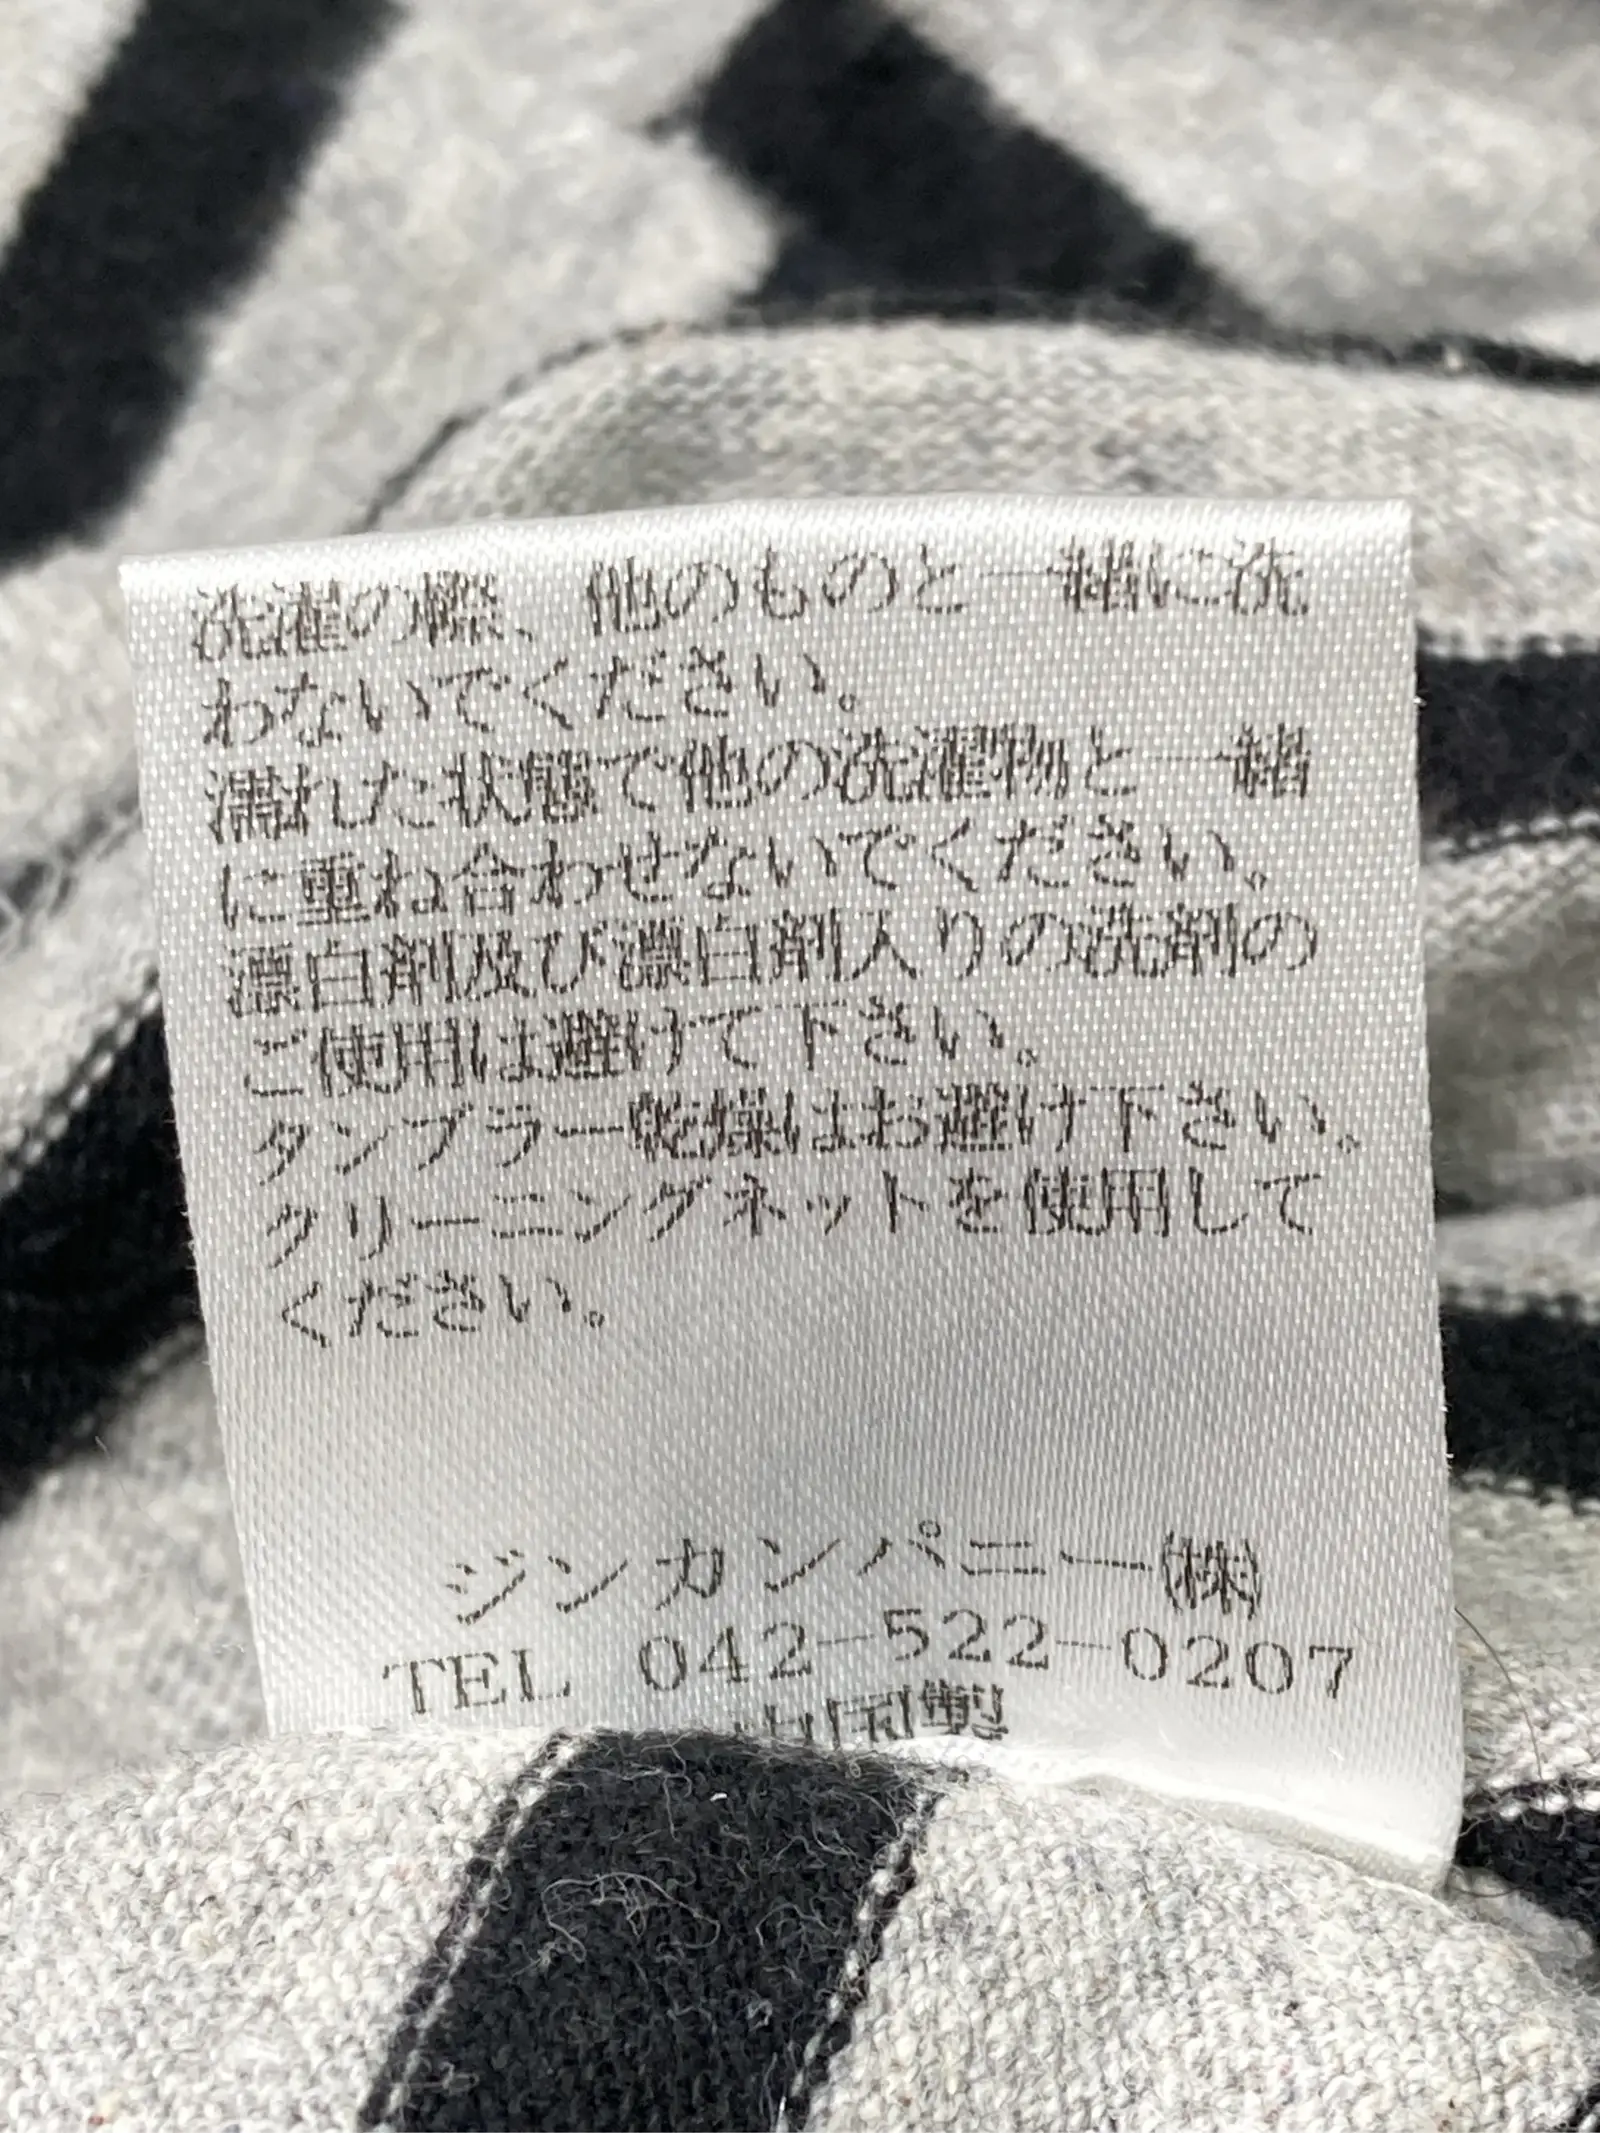 洗濯の際、他のものと一緒に洗
わないでください。
濡れた状態で他の洗濯物と一緒
に重ね合わせないでください。
漂白剤及び漂白剤入りの洗剤の
ご使用は避けて下さい。
タンブラー乾燥はお避け下さい。
クリーニングネットを使用して
ください。
ジンカンパニー(株)
TEL 042-522-0207
中国製